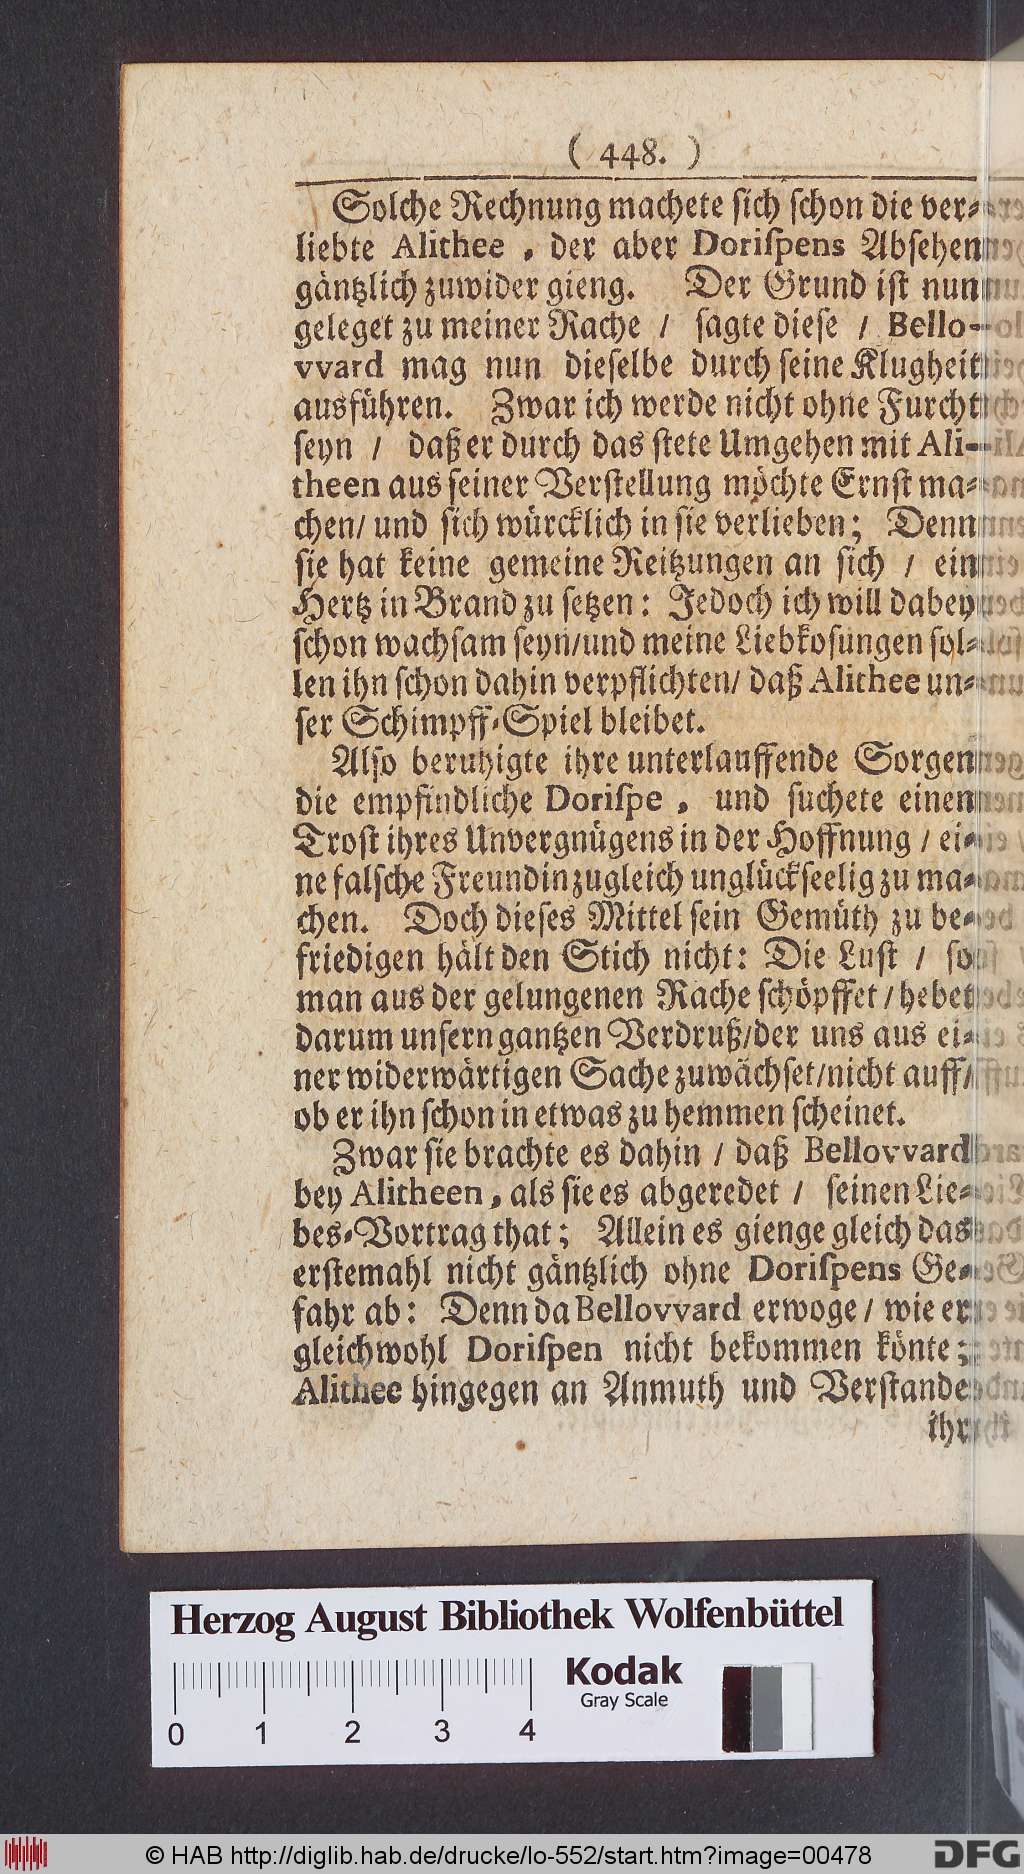 ( 448. )
Solche Rechnung machete sich schon die ver-
liebte Alithee, der aber Dorispens Absehen
gäntzlich zuwider gieng. Der Grund ist nun
geleget zu meiner Rache / sagte diese / Bello-
vvard mag nun dieselbe durch seine Klugheit
ausführen. Zwar ich werde nicht ohne Furcht
seyn / daß er durch das stete Umgehen mit Ali-
theen aus seiner Verstellung möchte Ernst ma-
chen / und sich würcklich in sie verlieben; Denn
sie hat keine gemeine Reitzungen an sich / ein
Hertz in Brand zu setzen: Jedoch ich will dabey
schon wachsam seyn/und meine Liebkosungen sol-
len ihn schon dahin verpflichten/ daß Alithee un-
ser Schimpff-Spiel bleibet.
Also beruhigte ihre unterlauffende Sorgen
die empfindliche Dorispe, und suchete einen
Trost ihres Unvergnügens in der Hoffnung / ei-
ne falsche Freundin zugleich unglückseelig zu ma-
chen. Doch dieses Mittel sein Gemüth zu be-
friedigen hält den Stich nicht: Die Lust / so
man aus der gelungenen Rache schöpffet / hebet
darum unsern gantzen Verdruß/der uns aus ei-
ner widerwärtigen Sache zuwächset/nicht auff/
ob er ihn schon in etwas zu hemmen scheinet.
Zwar sie brachte es dahin / daß Bellovvard
bey Alitheen, als sie es abgeredet / seinen Lie-
bes-Vortrag that; Allein es gienge gleich das
erstemahl nicht gäntzlich ohne Dorispens Ge-
fahr ab: Denn da Bellovvard erwoge / wie er
gleichwohl Dorispen nicht bekommen könte;
Alithee hingegen an Anmuth und Verstande
ihr
Herzog August Bibliothek Wolfenbüttel
Kodak
Gray Scale
0 1 2 3 4
© HAB http://diglib.hab.de/drucke/lo-552/start.htm?image=00478
DFG